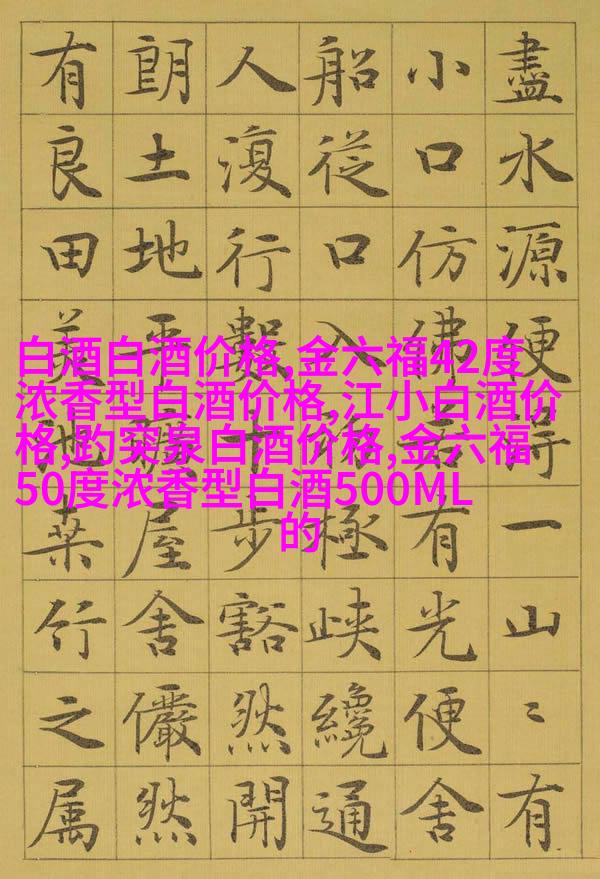 盡水源便得一山〻有
小口仿佛若有光便舍
船從口入初極峽纔通
人復行數十步豁然開
朗土地平曠屋舍儼然
有良田美池桑竹之属
白酒白酒价格,金六福42度
浓香型白酒价格,江小白酒价
格,趵突泉白酒价格,金六福
50度浓香型白酒500ML
的